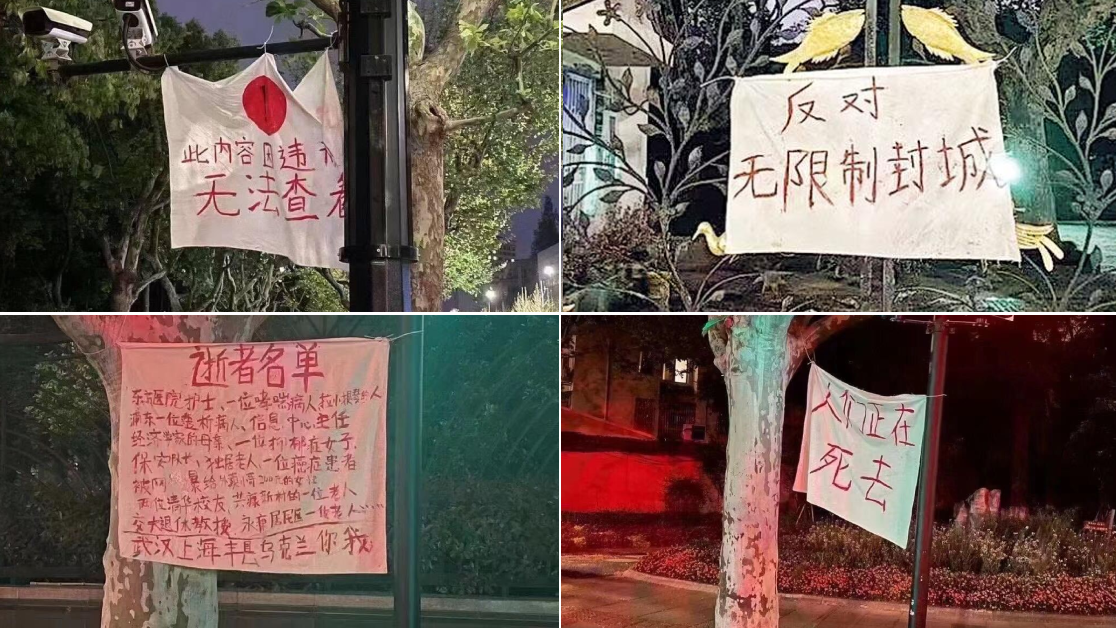 此内容因违
无法查看
反对
无限制封城
逝者名单
东方医院护士、一位哮喘病人 拉小提琴的人
浦东一位透析病人、信息中心主任
经济学家的母亲、一位抑郁症女子、
保安队长、独居老人 一位癌症患者
被网暴给小哥 200元的女子
两位清华校友、共康新村的一位老人
交大退休教授、永事居民区一位老人……
武汉上海丰县乌克兰你我
人们正在
死去